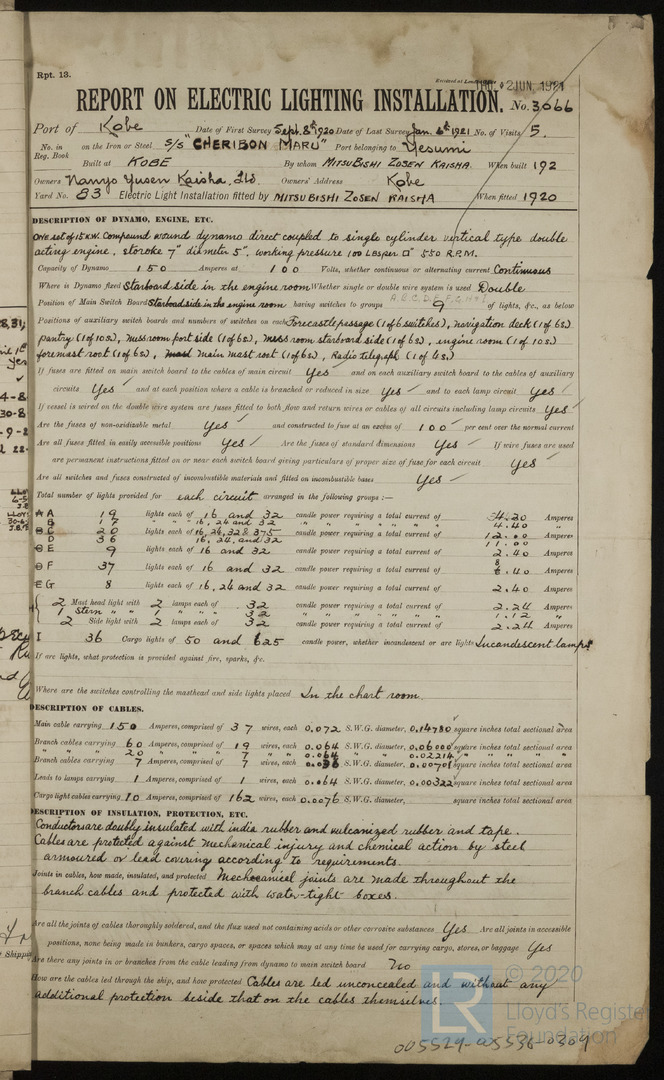 Rpt. 13.
Received at London Office THU. 2 JUN. 1921
REPORT ON ELECTRIC LIGHTING INSTALLATION. No. 3066
Port of Kobe Date of First Survey Sept. 8th 1920 Date of Last Survey Jan. 6th 1921 No. of Visits 5.
No. in Reg. Book on the Iron or Steel S/S "CHERIBON MARU" Port belonging to Yesumi
Built at KOBE By whom MITSUBISHI ZOSEN KAISHA. When built 192
Owners Nanyo Yusen Kaisha, Ltd Owners' Address Kobe
Yard No. 83 Electric Light Installation fitted by MITSUBISHI ZOSEN KAISHA When fitted 1920
DESCRIPTION OF DYNAMO, ENGINE, ETC.
ONE set of 15 K.W. Compound wound dynamo direct coupled to single cylinder vertical type double
acting engine. storoke 7" diameter 5", working pressure 100 LBS PER □" 550 R.P.M.
Capacity of Dynamo 150 Amperes at 100 Volts, whether continuous or alternating current Continuous
Where is Dynamo fixed Starboard side in the engine room Whether single or double wire system is used Double
A B C D E F G H & I
Position of Main Switch Board Starboad side in the engine room having switches to groups 9 of lights, &c., as below
Positions of auxiliary switch boards and numbers of switches on each Forecastle passage (1 of 6 switches), navigation deck (1 of 6 s)
pantry (1 of 10 s.), messroom port side (1 of 6 s.), mess room starboard side (1 of 6 s.), engine room (1 of 10 s.)
foremast root (1 of 6 s.), mast main mast root (1 of 6 s.), Radio telegraph (1 of 4 s.)
If fuses are fitted on main switch board to the cables of main circuit Yes and on each auxiliary switch board to the cables of auxiliary
circuits Yes and at each position where a cable is branched or reduced in size Yes and to each lamp circuit Yes
If vessel is wired on the double wire system are fuses fitted to both flow and return wires or cables of all circuits including lamp circuits Yes
Are the fuses of non-oxidizable metal Yes and constructed to fuse at an excess of 100 per cent over the normal current
Are all fuses fitted in easily accessible positions Yes Are the fuses of standard dimensions Yes If wire fuses are used
are permanent instructions fitted on or near each switch board giving particulars of proper size of fuse for each circuit Yes
Are all switches and fuses constructed of incombustible materials and fitted on incombustible bases Yes
Total number of lights provided for each circuit arranged in the following groups :—
A 19 lights each of 16 and 32 candle power requiring a total current of 4.20 Amperes
B 17 " " " 16, 24 and 32 " " " " " " 4.40 "
C 20 lights each of 16, 24, 32 & 375 candle power requiring a total current of 12.00 Amperes
D 36 16, 24, and 32 11.00
E 9 lights each of 16 and 32 candle power requiring a total current of 2.40 Amperes
F 37 lights each of 16 and 32 candle power requiring a total current of 8.40 Amperes
G 8 lights each of 16, 24 and 32 candle power requiring a total current of 2.40 Amperes
2 Mast head light with 2 lamps each of 32 candle power requiring a total current of 2.24 Amperes
1 Stern " " 1 " " 32 " " " " " " 1.12 "
2 Side light with 2 lamps each of 32 candle power requiring a total current of 2.24 Amperes
I 36 Cargo lights of 50 and 625 candle power, whether incandescent or arc lights Incandescent lamps
If arc lights, what protection is provided against fire, sparks, &c.
Where are the switches controlling the masthead and side lights placed In the chart room.
DESCRIPTION OF CABLES.
Main cable carrying 150 Amperes, comprised of 37 wires, each 0.072 S.W.G. diameter, 0.14780 square inches total sectional area
Branch cables carrying 60 Amperes, comprised of 19 wires, each 0.064 S.W.G. diameter, 0.06000 square inches total sectional area
" " " 20 " " " 7 " " 0.064 " " 0.02214 " " " "
Branch cables carrying 7 Amperes, comprised of 7 wires, each 0.036 S.W.G. diameter, 0.00701 square inches total sectional area
Leads to lamps carrying 1 Amperes, comprised of 1 wires, each 0.064 S.W.G. diameter, 0.00322 square inches total sectional area
Cargo light cables carrying 10 Amperes, comprised of 162 wires, each 0.0076 S.W.G. diameter, square inches total sectional area
DESCRIPTION OF INSULATION, PROTECTION, ETC.
Conductors are doubly insulated with india rubber and vulcanized rubber and tape.
Cables are protected against mechanical injury and chemical action by steel
armoured or lead covering according to requirements.
Joints in cables, how made, insulated, and protected Mechoeanical joints are made throughout the
branch cables and protected with water-tight boxes.
Are all the joints of cables thoroughly soldered, and the flux used not containing acids or other corrosive substances Yes Are all joints in accessible
positions, none being made in bunkers, cargo spaces, or spaces which may at any time be used for carrying cargo, stores, or baggage Yes
Are there any joints in or branches from the cable leading from dynamo to main switch board No
How are the cables led through the ship, and how protected Cables are led unconcealed and without any
additional protection beside that on the cables themselves.
LR © 2020
Lloyd's Register
Foundation
005529-005536-0309